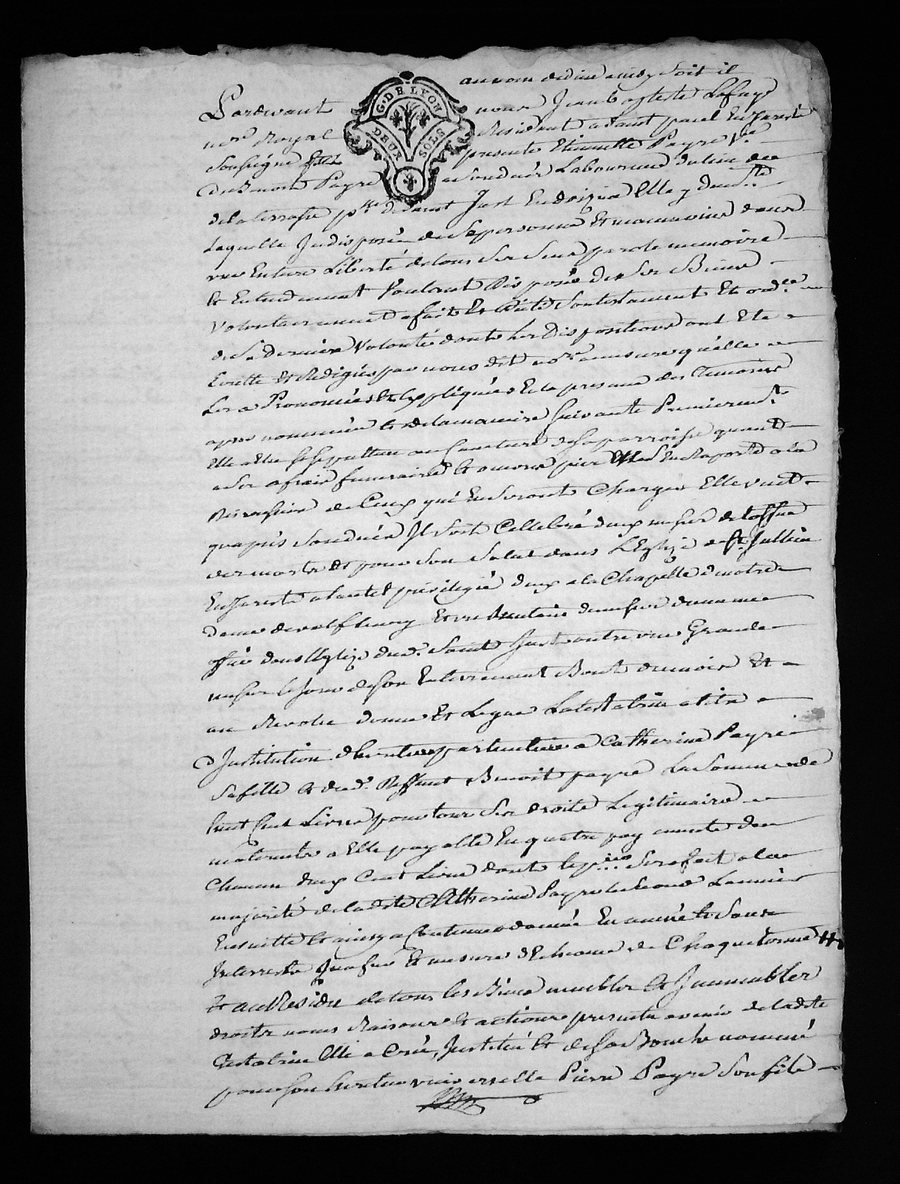 au nom de dieu ainsy soit il
Pardevant nous Jean Baptiste Lafay
no.re Royal Résident a Saint paul En Jarest
Soussigné présente Etiennette Payre V.e
G. DE LYON
DEUX SOLS
De Benoit Payre Laboureur du lieu de
de la terrasse p.sse de Saint Just En doizieu Elle y dem.te
Laquelle Indisposée de Sa personne Et neanmoins dans
une Entiere Liberté de tous Ses Sens parole memoire
Et Entendement Voulant Disposer de Ses Biens
Volontairement a fait Et dicté Son testament Et ord.ce
de Sa Derniere Volonté dont les Dispositions ont Eté
Ecritte Et Rédigés par nous dit no.re a mesure qu'elle
Les a Prononcées Et Expliquées En la presence des Temoins
apres nommés Et de la maniere Suivante Premierem.t
Elle Elit sa Sepulture au Cimetiere de Sa parroisse quant
a Ses afrais funeraire Et aumone
Discression de Ceux qui En Seront Chargés Elle veut
qu'apres Son décés Il Soit Cellebré deux messes de loffice
des morts Et pour Son Salut dans L'Eglize de S.t Jullien
En Jarest a lautel privilegié deux a la Chapelle de notre
dame de valfleury Et un trentaine de messes du meme
office dans l'Eglize dud. Saint Just outre une Grande
messe le Jour de Son Enterrement Bout du mois Et
an Revolu donne Et Legue La testatrice a titre
d'Institution d'heritiere particuliere a Catherine Payre
Sa fille Et dud. deffunt Benoit payre La Somme de
huit Cent Livres pour tous Ses droits Legitimaire
maternels a Elle payable En quatre payements de
Chacun deux Cent Livres dont le p.er Sera fait a la
majorité de ladite Catherine Payre le Second L'année
Ensuitte Et ainsy a Continuer d'année En année Et Sans
Interrests Jusques Et a mesure d'Echeance de Chaque terme
Et au Residu de tous les Biens meubles Et Immeubles
droits noms Raisons Et actions presents a venir de ladite
testatrice Elle a Créé, Institué Et de Sa Bouche nommé
pour Son heritier universelle Pierre Payre Son fils